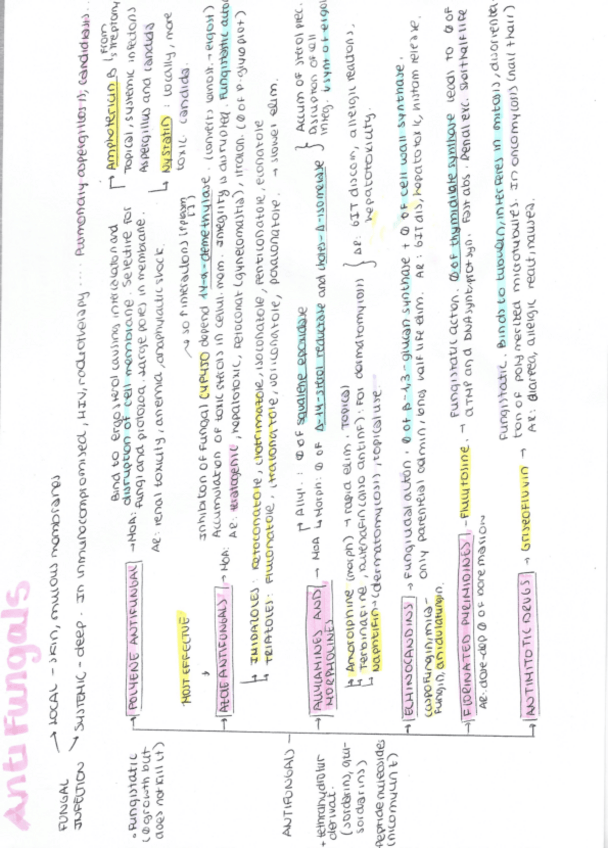 Antifungals
FUNGAL INFECTION → LOCAL - skin, mucous membranes
↘ SYSTEMIC - deep. In immunocompromised, HIV, radiotherapy .... Pulmonary aspergillosis, candidiasis..
• Fungistatic
(Ø growth but
does not kill it)
ANTIFUNGALS
+ tetrahydrofur
derivat.
(sordarins,
sordarins)
Peptide nucleosides
(nicomycin z)
→ POLYENE ANTIFUNGAL → MoA: Bind to ergosterol causing
disruption of cell membrane. Selective for
fungi and protozoa. Large pores in membrane.
AR: renal toxicity, anemia, anaphylactic shock.
Amphotericin B (from streptomy
Topical, systemic infections
Aspergillus and candida
↳ Nystatin: locally, more
toxic. candida.
MOST EFFECTIVE
→ AZOLE ANTIFUNGALS → MoA: Inhibition of fungal CYP450 depend 14-α-demethylase. (converts lanost. → ergost)
Accumulation of toxic sterols in cellul. mem. Integrity is disrupted. Fungistatic
AR: teratogenic, hepatotoxic, ketoconat (gynecomastia), itracon. (Ø of p-glycoprot)
↳ IMIDAZOLES: ketoconazole, clotrimazole, isoconazole, fenticonazole, econazole
↳ TRIAZOLES: fluconazole, itraconazole, voriconazole, posaconazole. → slower elim.
→ ALLYLAMINES AND
MORPHOLINES → MoA
Allyl.: Ø of squalene epoxidase
↳ Morph: Ø of Δ-14-sterol reductase and Δ-isomerase
Accum of sterol prec.
Disruption of cell
integ. ↓synt of ergo
↳ Amorolphine (morph) → rapid elim. Topical
↳ Terbinafine, butenafine (also antinf): for dermatomycosis
↳ Naphtifin → (dermatomycosis), topical use
AR: GIT discom, allergic reactions,
hepatotoxicity.
→ ECHINOCANDINS → Fungicidal action. Ø of β-1,3-glucan synthase + Ø of cell wall synthase.
caspofungin, mica-
fungin, anidulafungin.
only parenteral admin, long half life elim. AR: GIT dis, hepatotoxic, histam release.
→ FLORINATED PYRIMIDINES - Flucytosine. → Fungistatic action. Ø of thymidilate synthase leads to Ø of
dTMP and DNA synt, prot syn. Fast abs. Renal exc. Short half life
AR: dose-dep Ø of bone marrow
→ ANTIMITOTIC DRUGS → Griseofulvin → Fungistatic. Binds to tubulin, interferes in mitosis, disorienta
tion of polymerited microtubules. In oncomycosis (nail + hair)
AR: diarrea, allergic react, nausea.